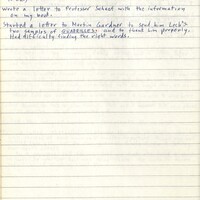 Wrote a letter to Professor Schoot with the information
on my bed.
Started a letter to Martin Gardner to send him Loeb's
two samples of and to thank him properly.
Had difficulty finding the right words.